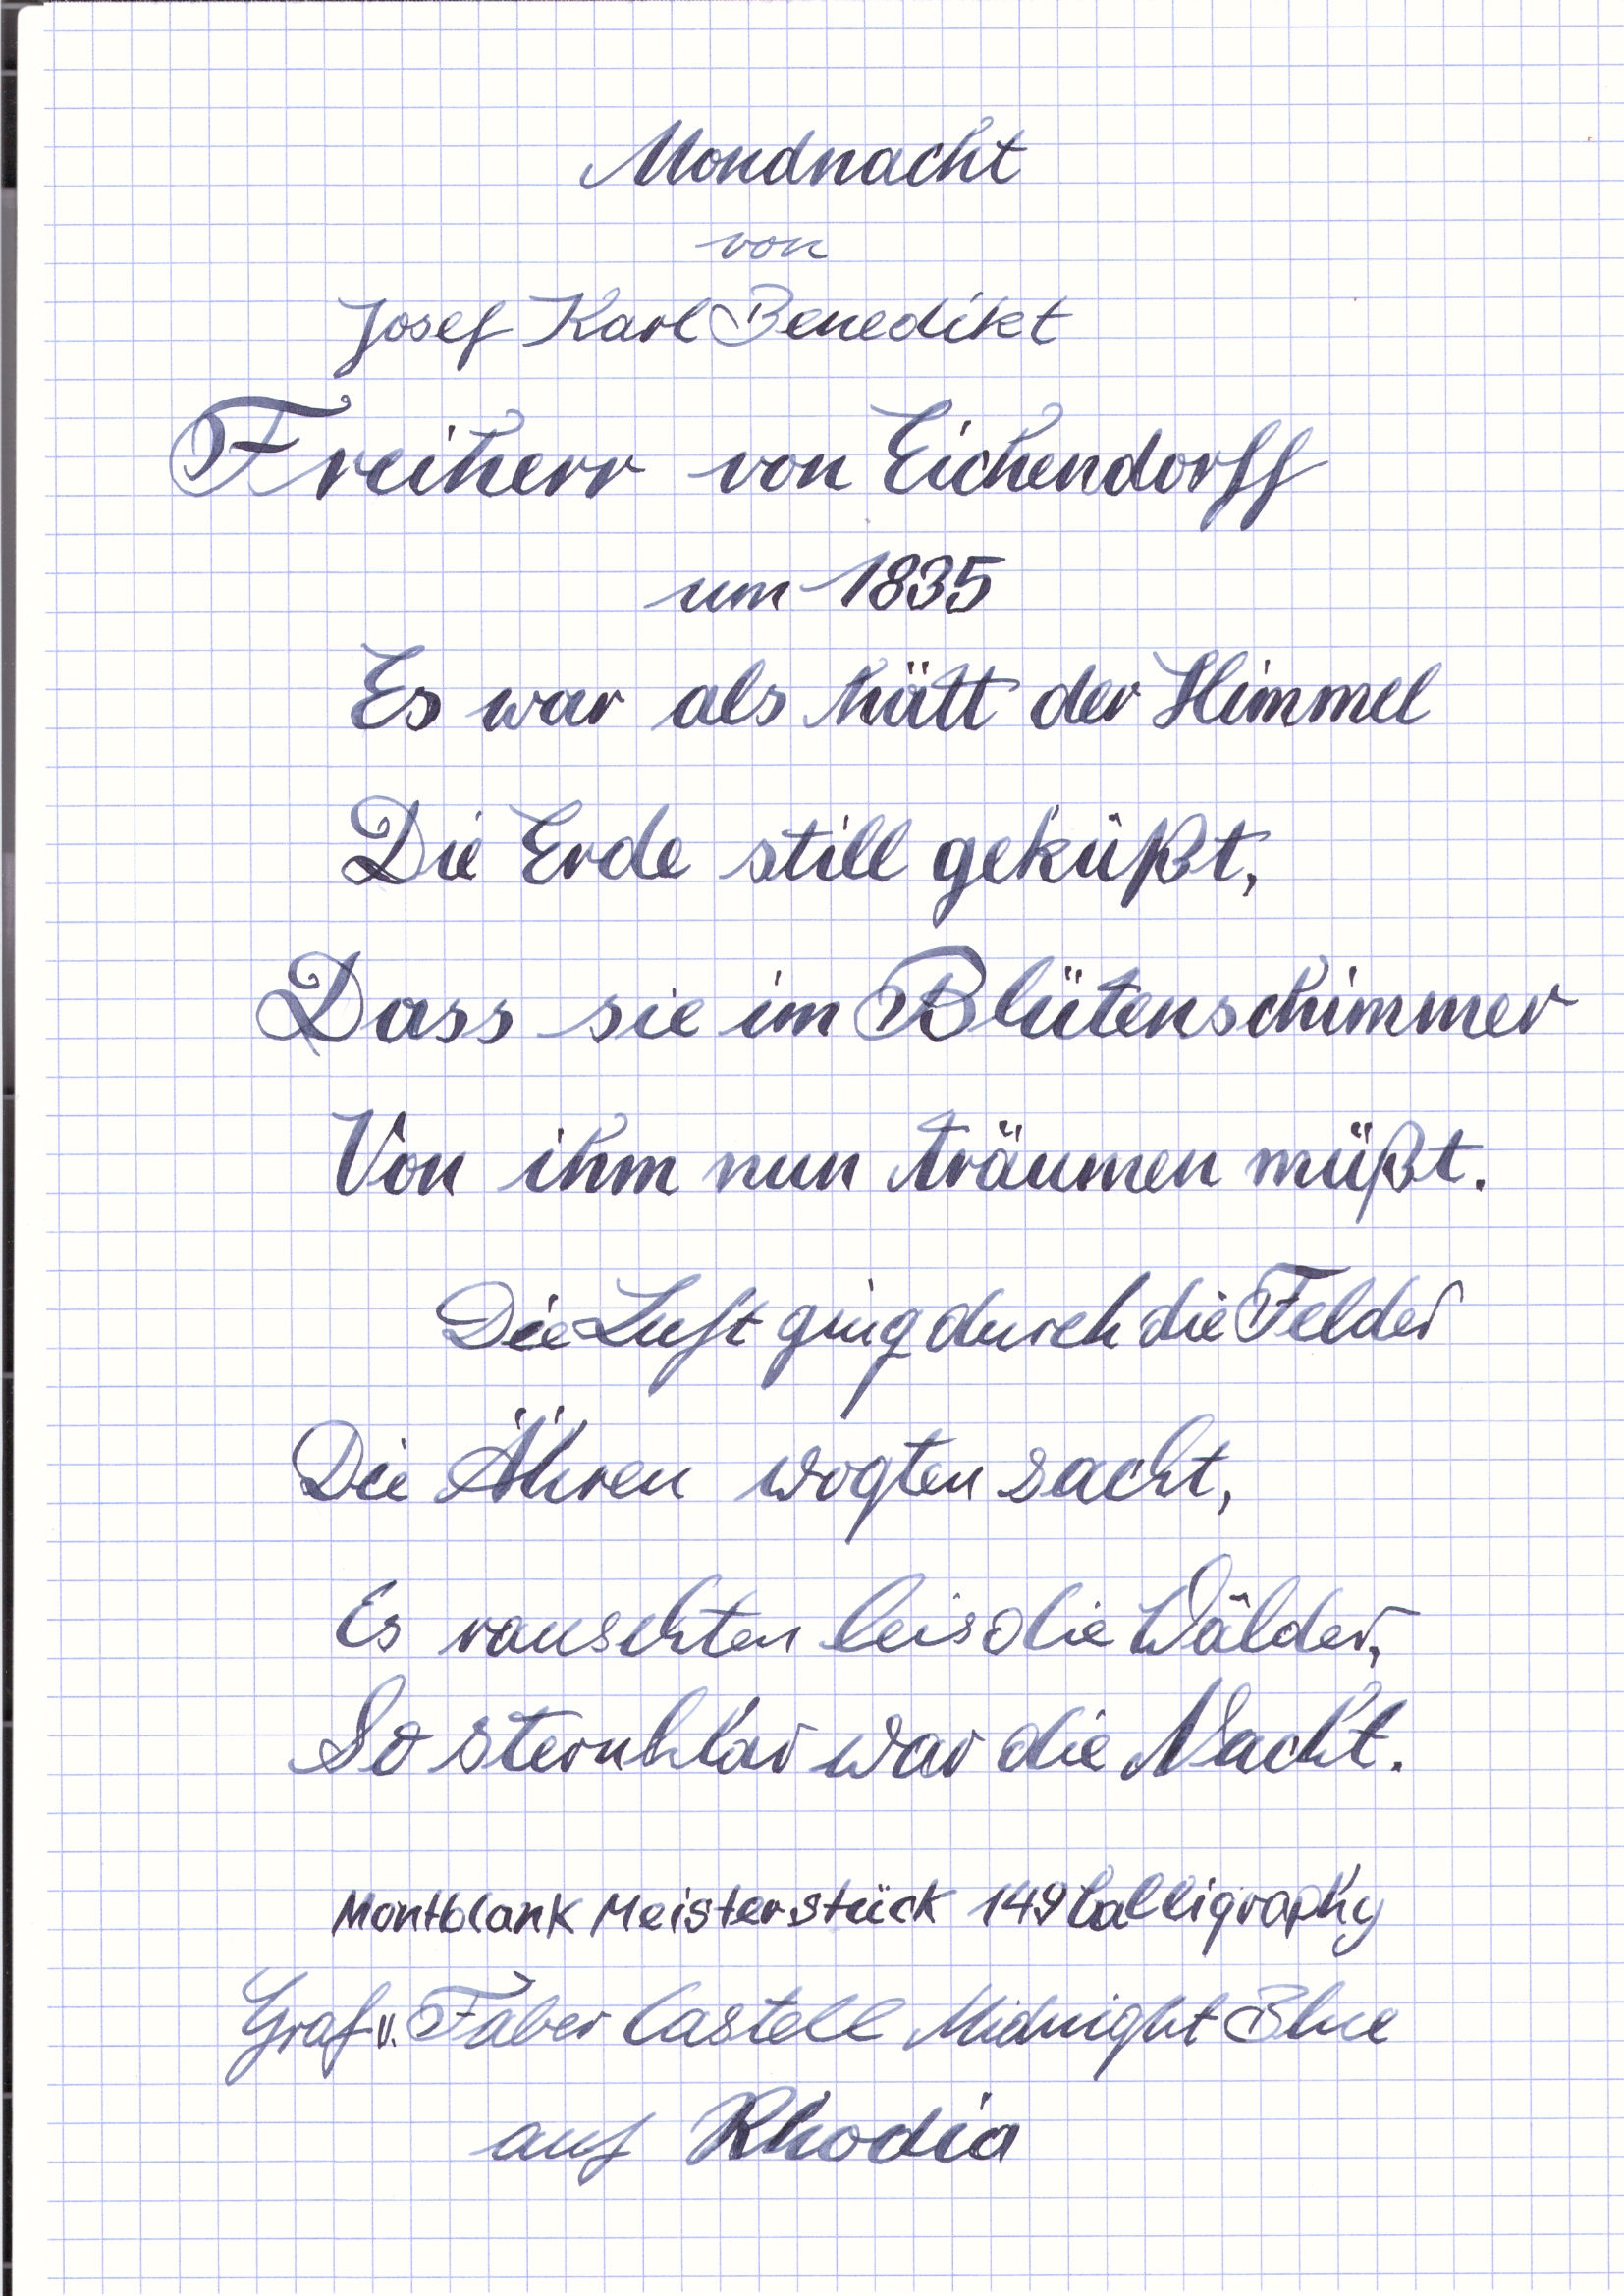 Mondnacht
von
Josef Karl Benedikt
Freiherr von Eichendorff
um 1835
Es war als hätt der Himmel
Die Erde still geküßt,
Dass sie im Blütenschimmer
Von ihm nun träumen müßt.
Die Luft ging durch die Felder
Die Ähren wogten sacht,
Es rauschten leis die Wälder,
So sternklar war die Nacht.
Montblank Meisterstück 149 Calligraphy
Graf v. Faber Castell Midnight Blue
auf Rhodia